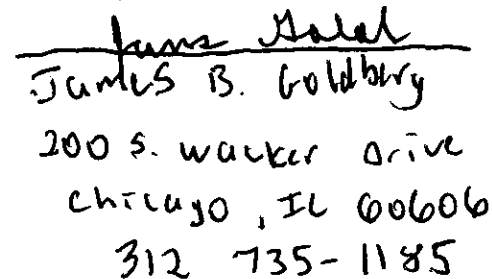 James B. Goldberg
200 S. Wacker Drive
Chicago, IL 60606
312 735-1185